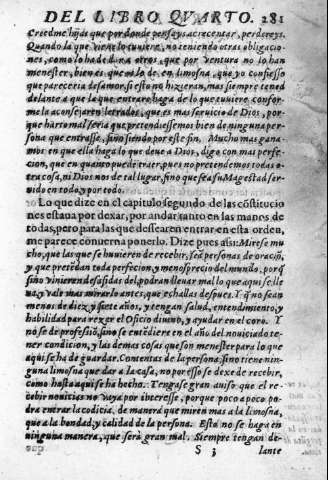 DEL LIBRO QVARTO. 281
Creedme hijas que por donde pensays acrecentar, perdereys.
Quando la que viene lo tuuiere, no teniendo otras obligacio-
nes, como lo ha de dar a otros, que por ventura no lo han
menester, bien es que os lo de en limosna, que yo confiesso
que pareceria desamor, si esto no hizieran, mas siempre tened
delante a que la que entrare haga de lo que tuuiere confor-
me la aconsejaren letrados, que es mas seruicio de Dios, por-
que harto mal seria que pretendiessemos bien de ninguna per-
sona que entrasse, sino siendo por este fin. Mucho mas gana-
mos en que ella haga lo que deue a Dios, digo con mas perfe-
cion, que en quanto puede traer, pues no pretendemos todas o-
tra cosa, ni Dios nos de tal lugar, sino que sea su Magestad ser-
uido en todo, y por todo.
Lo que dize en el capitulo segundo de las cõstitucio
nes estaua por dexar, por andar tanto en las manos de
todas, pero para las que dessearen entrar en esta orden,
me parece conuerna ponerlo. Dize pues assi: Mirese mu
cho, que las que se huuieren de recebir, seã personas de oraciõ,
y que pretendan toda perfecion, y menosprecio del mundo, porq̃
sino vinieren desasidas del podran lleuar mal lo que aqui se lle
ua, y vale mas mirarlo antes, que echallas despues. Y q̃ no sean
menos de diez y siete años, y tengan salud, entendimiento, y
habilidad para rezar el Oficio diuino, y ayudar en el coro. Y
no se de professiõ, sino se entẽdiere en el año del nouiciado te-
ner condicion, y las demas cosas que son menester para lo que
aqui se ha de guardar. Contentas de la persona, sino tiene nin-
guna limosna que dar a la casa, no por esso se dexe de recebir,
como hasta aqui se ha hecho. Tengase gran auiso que el re-
cebir nouicias no vaya por interesse, porque poco a poco po-
dra entrar la codicia, de manera que miren mas a la limosna,
que a la bondad, y calidad de la persona. Esto no se haga en
ninguna manera, que será gran mal. Siempre tengan de-
S 3 lante